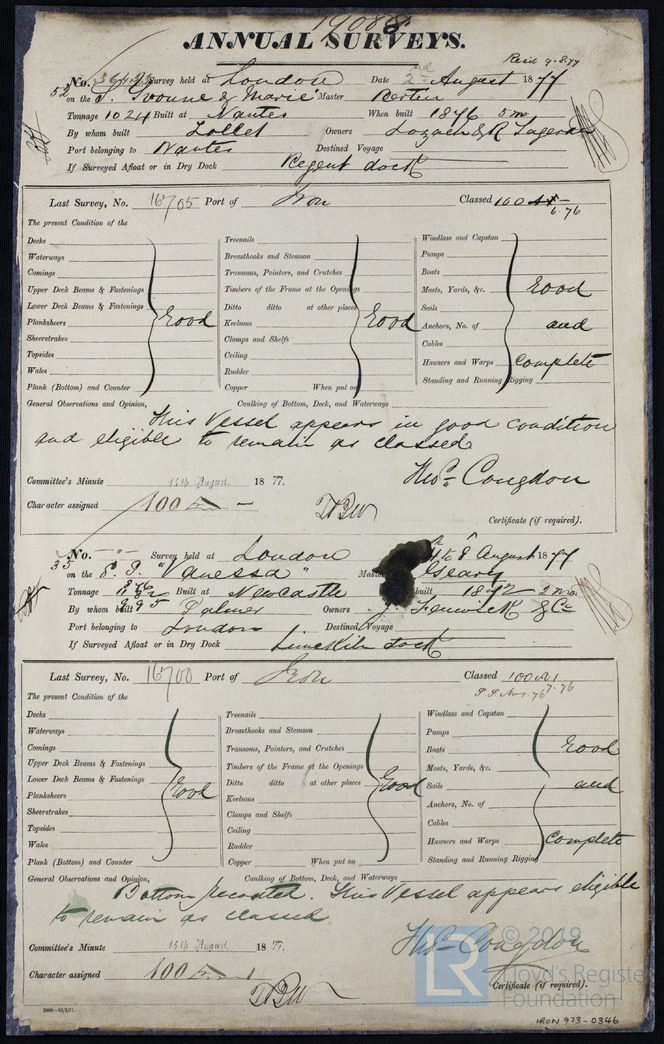 19088
ANNUAL SURVEYS.
Recd 9.8.77
No. Survey held at London Date 2nd August 1877
52 on the S. Yvonne & Marie Master Bertin
Tonnage 1024 Built at Nantes When built 1876 5 mo
By whom built Lollet Owners
Port belonging to Nantes Destined Voyage
If Surveyed Afloat or in Dry Dock Regent dock
Last Survey, No. 16705 Port of Iron Classed 100 A1
6.76
The present Condition of the
Decks Treenails Windlass and Capstan
Waterways Breasthooks and Stemson Pumps
Comings Transoms, Pointers, and Crutches Boats
Upper Deck Beams & Fastenings Timbers of the Frame at the Openings Masts, Yards, &c. Good
Lower Deck Beams & Fastenings Ditto ditto at other places Sails
Planksheers Good Keelsons Good Anchors, No. of and
Sheerstrakes Clamps and Shelfs Cables
Topsides Ceiling Hawsers and Warps Complete
Wales Rudder Standing and Running Rigging
Plank (Bottom) and Counter Copper When put on
General Observations and Opinion, Caulking of Bottom, Deck, and Waterways
This Vessel appears in good condition
and eligible to remain as classed
Committee's Minute 14th August 1877. Thos. Congdon
Character assigned 100 A
Certificate (if required).
No. Survey held at London 4 to 8 August 1877
35 on the S.S. "Vanessa" Master Geary
Tonnage Built at Newcastle built 1872 2 mo.
By whom built Palmer Owners J. Fenwick & Co
Port belonging to London Destined Voyage
If Surveyed Afloat or in Dry Dock Limekiln dock
Last Survey, No. 16700 Port of Iron Classed 100 A1
7.76
The present Condition of the
Decks Treenails Windlass and Capstan
Waterways Breasthooks and Stemson Pumps
Comings Transoms, Pointers, and Crutches Boats Good
Upper Deck Beams & Fastenings Timbers of the Frame at the Openings Masts, Yards, &c.
Lower Deck Beams & Fastenings Ditto ditto at other places Sails and
Planksheers Good Keelsons Good Anchors, No. of
Sheerstrakes Clamps and Shelfs Cables
Topsides Ceiling Hawsers and Warps Complete
Wales Rudder Standing and Running Rigging
Plank (Bottom) and Counter Copper When put on
General Observations and Opinion, Caulking of Bottom, Deck, and Waterways
Bottom recoated. This Vessel appears eligible
to remain as classed
Committee's Minute 14th August 1877. Thos. Congdon
Character assigned 100 A 1
Certificate (if required).
LR © 2019
Lloyd's Register
Foundation
IRON 473-0346